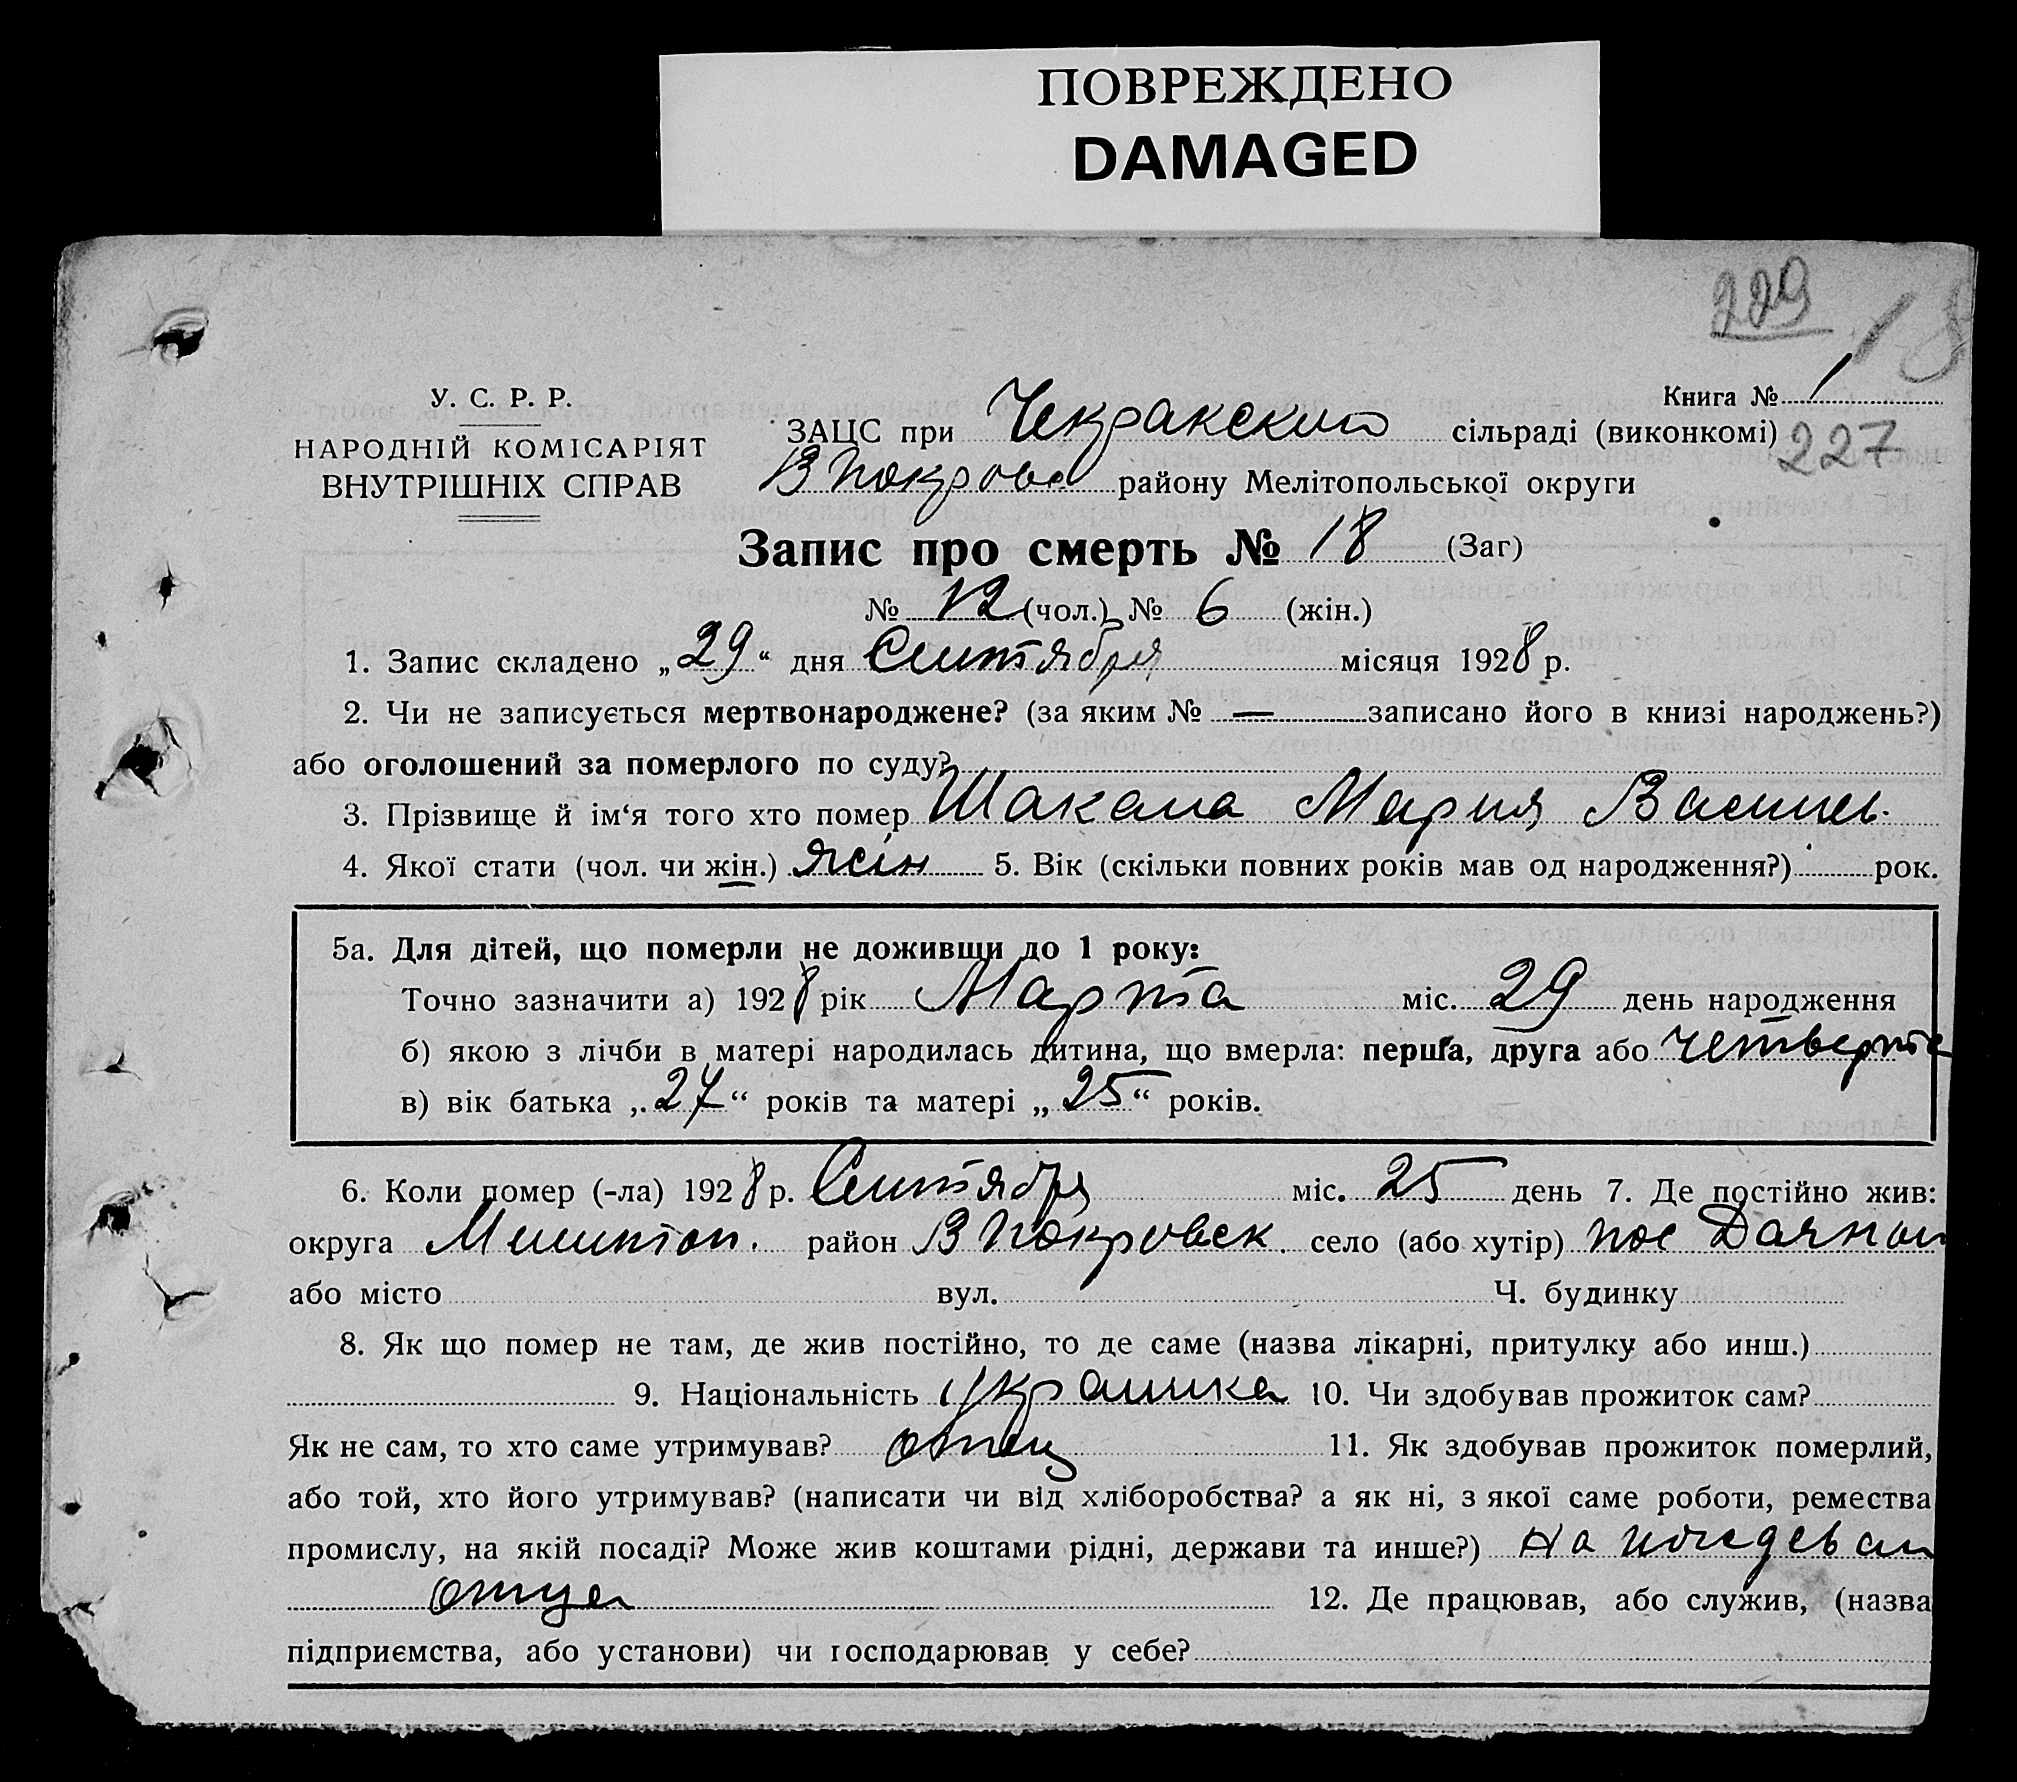 ПОВРЕЖДЕНО
DAMAGED
229
18
У. С. Р. Р.
НАРОДНІЙ КОМІСАРІЯТ
ВНУТРІШНІХ СПРАВ
Книга № 1
ЗАЦС при Чекракский сільраді (виконкомі)
227
В Покров району Мелітопольської округи
Запис про смерть № 18 (Заг)
№ 12 (чол.) № 6 (жін.)
1. Запис складено „29“ дня Сентября місяця 1928 р.
2. Чи не записується мертвонароджене? (за яким № — записано його в книзі народжень?)
або оголошений за померлого по суду?
3. Прізвище й ім‘я того хто помер Шакала Мария Василь.
4. Якої стати (чол. чи жін.) жін 5. Вік (скільки повних років мав од народження?) рок.
5а. Для дітей, що померли не доживши до 1 року:
Точно зазначити а) 1928 рік Марта міс. 29 день народження
б) якою з лічби в матері народилась дитина, що вмерла: перша, друга або четверта
в) вік батька „27“ років та матері „25“ років.
6. Коли помер (-ла) 1928 р. Сентября міс. 25 день 7. Де постійно жив:
округа Мелитоп. район В Покровск. село (або хутір) пос
або місто вул. Ч. будинку
8. Як що помер не там, де жив постійно, то де саме (назва лікарні, притулку або инш.)
9. Національність украинка 10. Чи здобував прожиток сам?
Як не сам, то хто саме утримував? отец 11. Як здобував прожиток померлий,
або той, хто його утримував? (написати чи від хліборобства? а як ні, з якої саме роботи, ремества
промислу, на якій посаді? Може жив коштами рідні, держави та инше?) На
отца 12. Де працював, або служив, (назва
підприємства, або установи) чи господарював у себе?